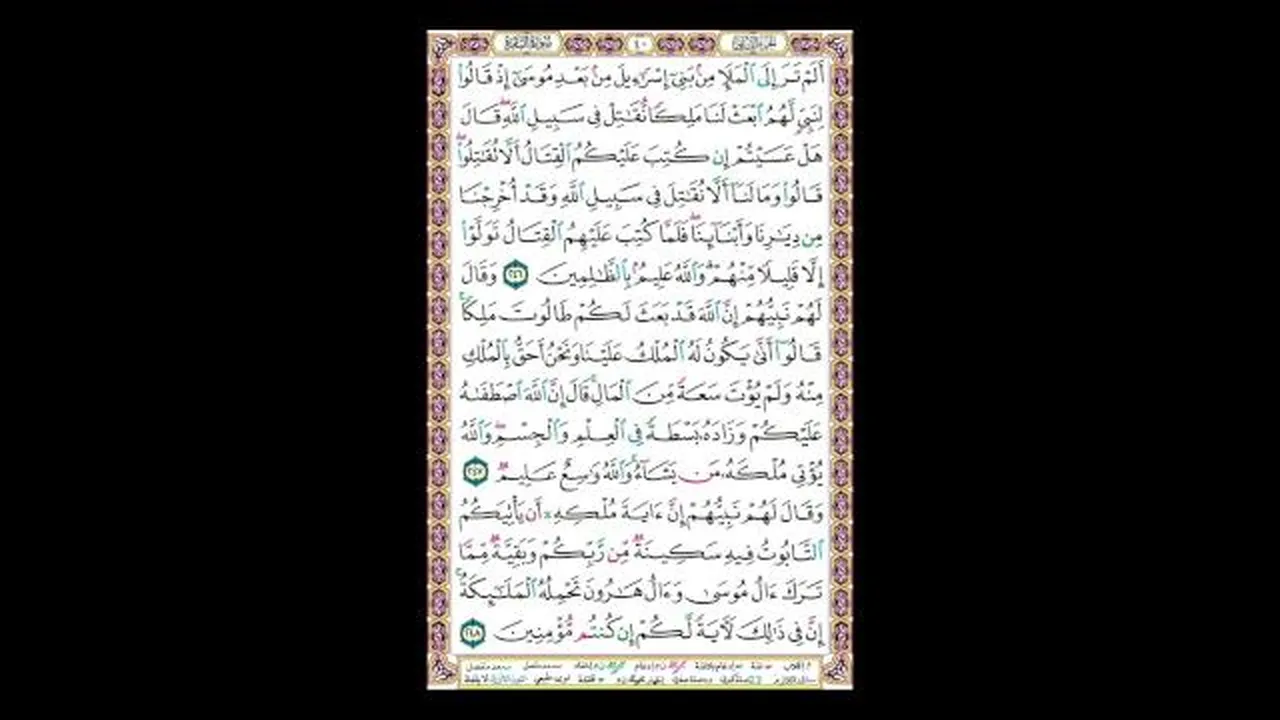 الجزء الثاني ٤٠ سورة البقرة
أَلَمْ تَرَ إِلَى ٱلْمَلَإِ مِنۢ بَنِىٓ إِسْرَٰٓءِيلَ مِنۢ بَعْدِ مُوسَىٰٓ إِذْ قَالُوا۟
لِنَبِىٍّ لَّهُمُ ٱبْعَثْ لَنَا مَلِكًا نُّقَٰتِلْ فِى سَبِيلِ ٱللَّهِ ۖ قَالَ
هَلْ عَسَيْتُمْ إِن كُتِبَ عَلَيْكُمُ ٱلْقِتَالُ أَلَّا تُقَٰتِلُوا۟ ۖ
قَالُوا۟ وَمَا لَنَآ أَلَّا نُقَٰتِلَ فِى سَبِيلِ ٱللَّهِ وَقَدْ أُخْرِجْنَا
مِن دِيَٰرِنَا وَأَبْنَآئِنَا ۖ فَلَمَّا كُتِبَ عَلَيْهِمُ ٱلْقِتَالُ تَوَلَّوْا۟
إِلَّا قَلِيلًا مِّنْهُمْ ۗ وَٱللَّهُ عَلِيمٌۢ بِٱلظَّٰلِمِينَ ٢٤٦ وَقَالَ
لَهُمْ نَبِيُّهُمْ إِنَّ ٱللَّهَ قَدْ بَعَثَ لَكُمْ طَالُوتَ مَلِكًا ۚ
قَالُوٓا۟ أَنَّىٰ يَكُونُ لَهُ ٱلْمُلْكُ عَلَيْنَا وَنَحْنُ أَحَقُّ بِٱلْمُلْكِ
مِنْهُ وَلَمْ يُؤْتَ سَعَةً مِّنَ ٱلْمَالِ ۚ قَالَ إِنَّ ٱللَّهَ ٱصْطَفَىٰهُ
عَلَيْكُمْ وَزَادَهُۥ بَسْطَةً فِى ٱلْعِلْمِ وَٱلْجِسْمِ ۖ وَٱللَّهُ
يُؤْتِى مُلْكَهُۥ مَن يَشَآءُ ۚ وَٱللَّهُ وَٰسِعٌ عَلِيمٌ ٢٤٧
وَقَالَ لَهُمْ نَبِيُّهُمْ إِنَّ ءَايَةَ مُلْكِهِۦٓ أَن يَأْتِيَكُمُ
ٱلتَّابُوتُ فِيهِ سَكِينَةٌ مِّن رَّبِّكُمْ وَبَقِيَّةٌ مِّمَّا
تَرَكَ ءَالُ مُوسَىٰ وَءَالُ هَٰرُونَ تَحْمِلُهُ ٱلْمَلَٰٓئِكَةُ ۚ
إِنَّ فِى ذَٰلِكَ لَءَايَةً لَّكُمْ إِن كُنتُم مُّؤْمِنِينَ ٢٤٨